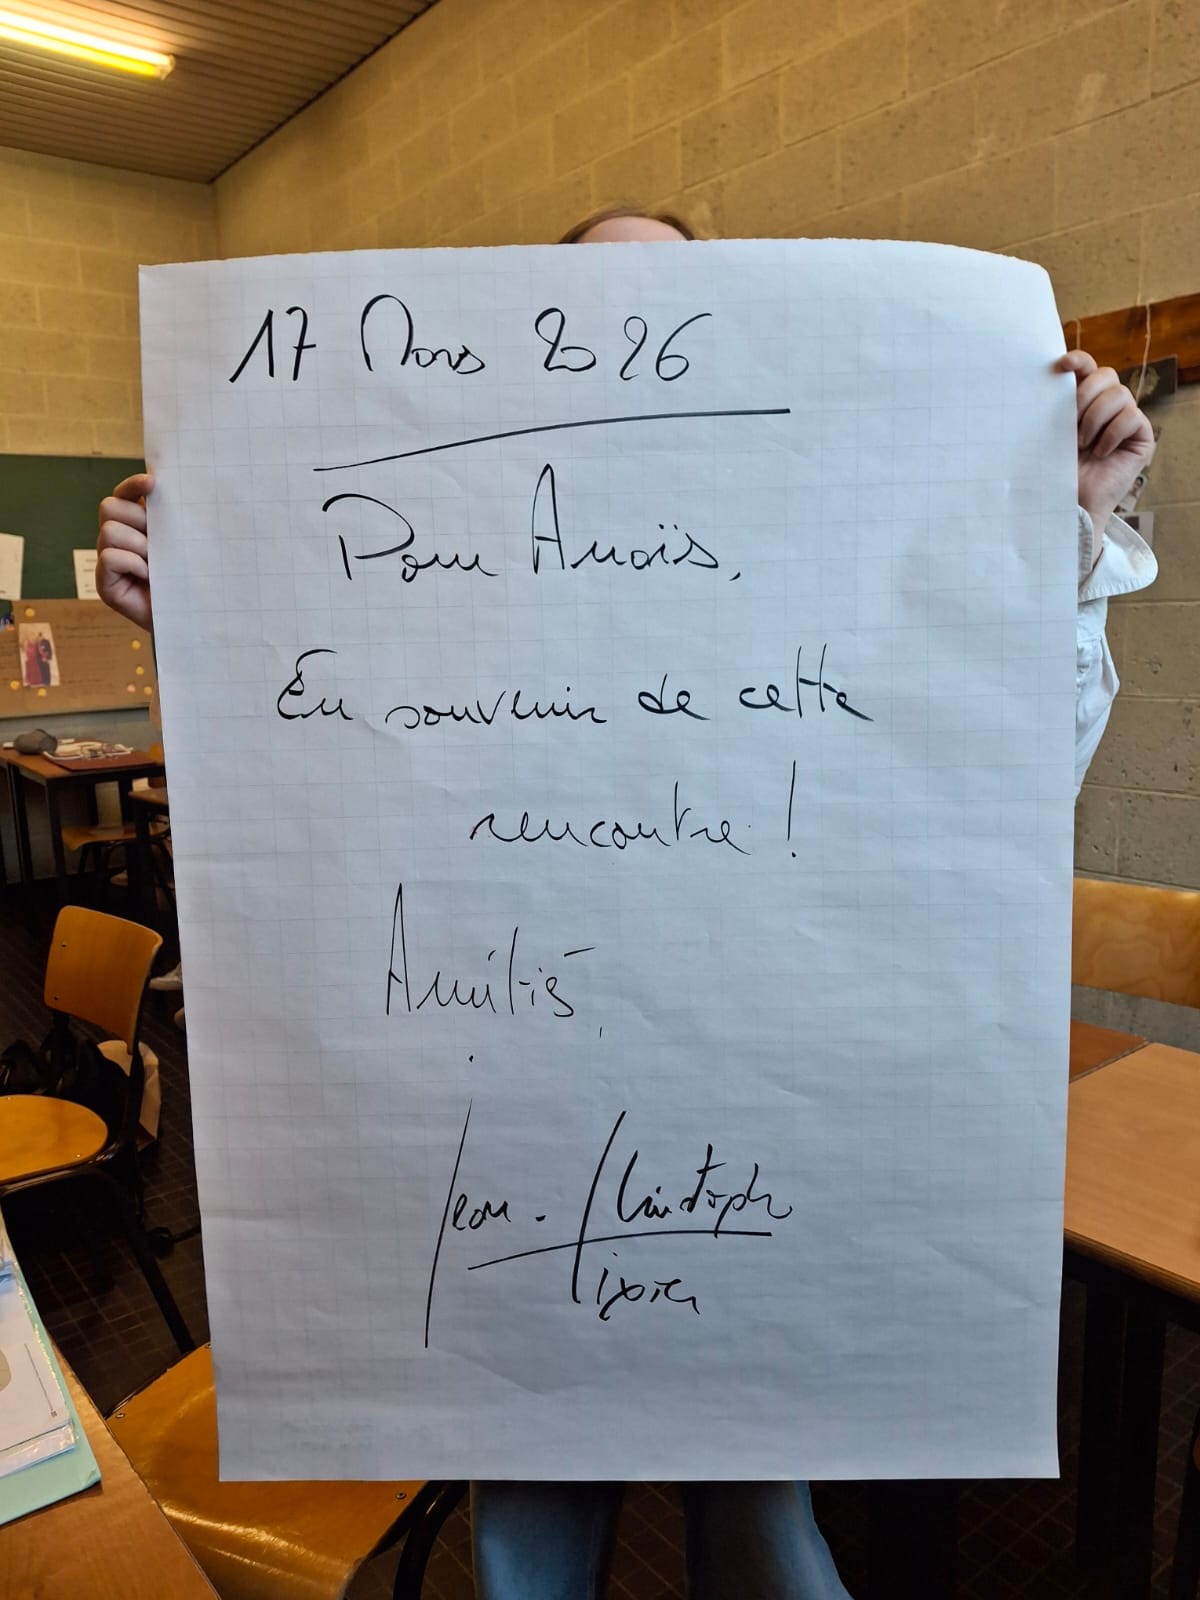 17 Mars 2026
Pour Anaïs,
En souvenir de cette
rencontre !
Amitiés,
Jean-Christophe
Tixier